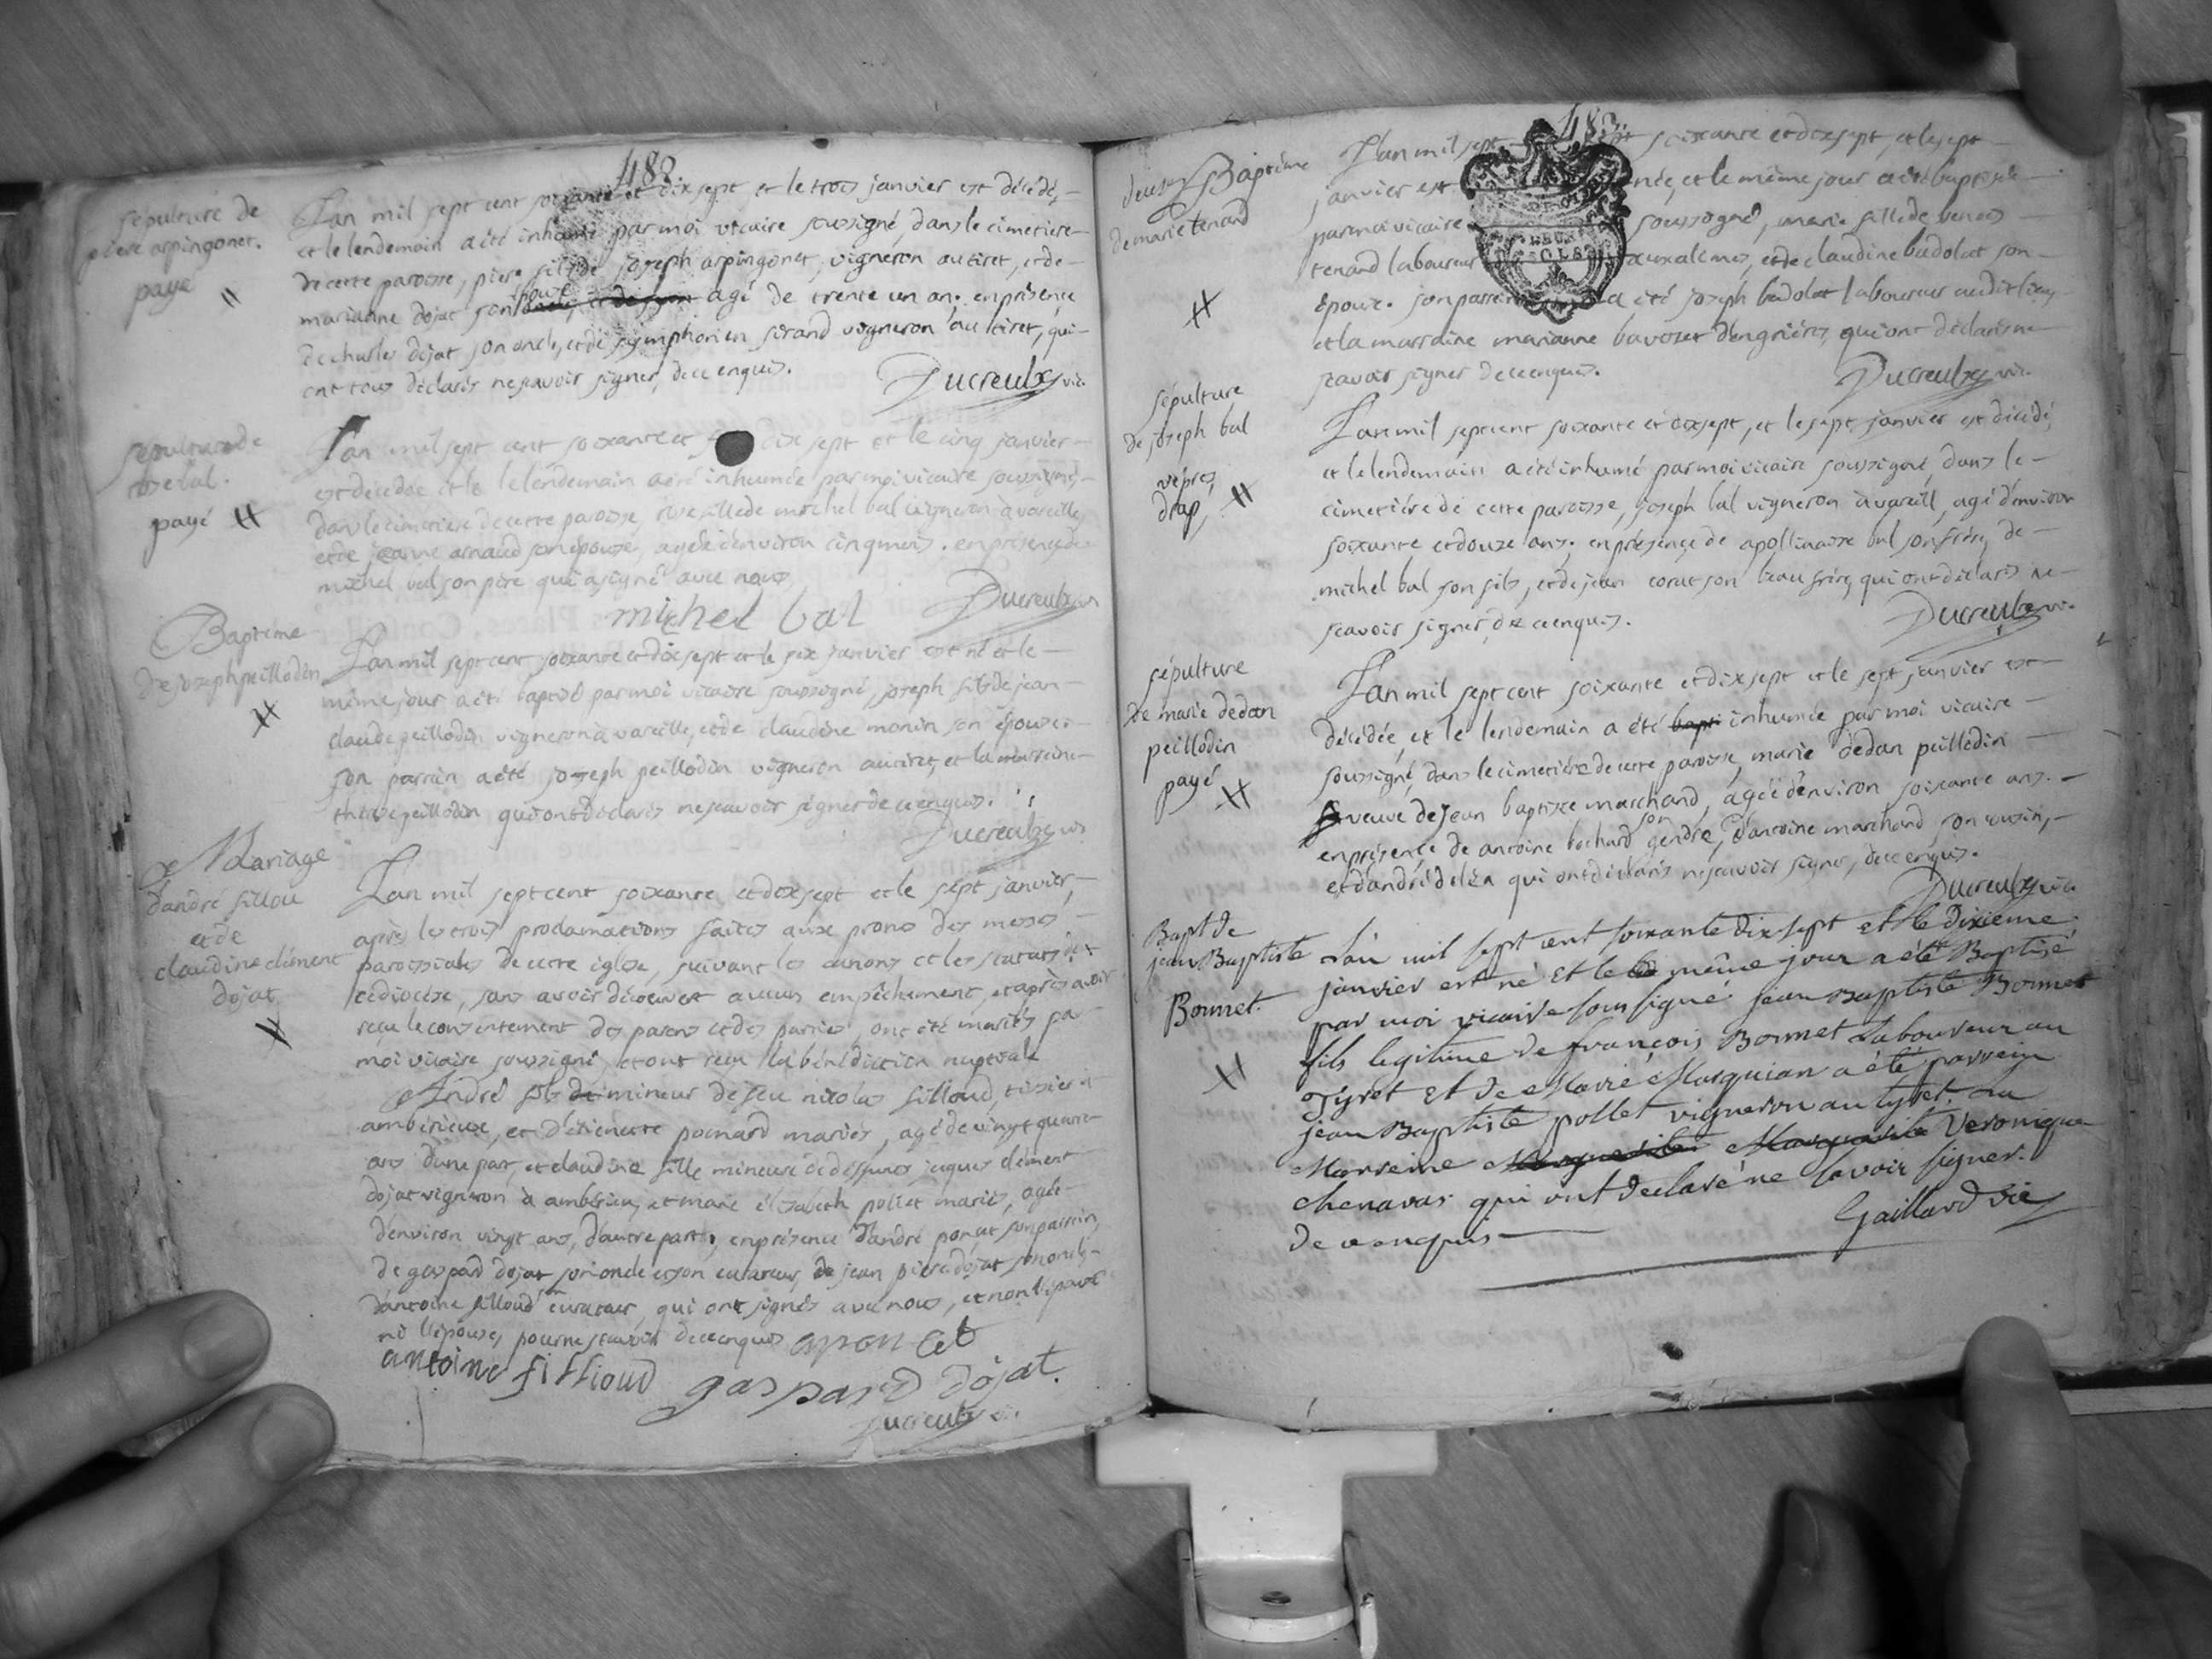 488
sépulture de
piere arpingonet.
payé
L'an mil sept cent soixante et dix sept et le trois janvier est décédé,
et le lendemain a été inhumé par moi vicaire soussigné, dans le cimetiere
de cette paroisse, piere fils de joseph arpingonet, vigneron au tiret, et de
marianne dojat son épouse agé de trente un an; en présence
de charles dojat son oncle, et de symphorien sirand vigneron au tiret, qui
ont tous déclarés ne scavoir signer, de ce enquis.
Ducreulx vic.
sépulture de
rose bal.
payé
L'an mil sept cent soixante et dix sept et le cinq janvier
est décédée et le lendemain a été inhumée par moi vicaire soussigné,
dans le cimetiere de cette paroisse, rose fille de michel bal vigneron à vareille,
et de jeanne arnaud son épouse, agée d'environ cinq mois. en présence de
michel bal son père qui a signé avec nous
michel bal Ducreulx vic
Baptême
de joseph peillodin
L'an mil sept cent soixante et dix sept et le six janvier est né et le
même jour a été baptisé par moi vicaire soussigné, joseph fils de jean
claude peillodin vigneron à vareille, et de claudine monin son épouse.
son parrain a été joseph peillodin vigneron au tiret, et la marraine
therese peillodin qui ont déclarés ne scavoir signer de ce enquis.
Ducreulx vic
Mariage
d'andré filliou
et de
claudine clément
dojat
L'an mil sept cent soixante et dix sept et le sept janvier,
après les trois proclamations faites aux prones des messes
paroissiales de cette église, suivant les canons et les statuts de
ce diocèse, sans avoir découvert aucun empêchement, et après avoir
reçu le consentement des parens et des parties, ont été mariés par
moi vicaire soussigné, et ont reçu la bénédiction nuptiale
André fils mineur de feu nicolas filloud, tissier à
ambérieux, et d'étienette poinard mariés, agé de vingt quatre
ans d'une part, et claudine fille mineure de jaques clément
dojat vigneron à ambérieu, et marie élizabeth pollet mariés, agée
d'environ vingt ans, d'autre part, en présence d'andré poncet son parrain,
de gaspard dojat son oncle et son curateur, de jean piere dojat son oncle
d'antoine filloud curateur, qui ont signés avec nous, et non l'époux
ni l'épouse, pour ne scavoir de ce enquis aponcet
antoine fillioud gaspard dojat.
Ducreulx vic.
483
Baptême
de marie tenand
L'an mil sept cent soixante et dix sept, et le sept
janvier est née, et le même jour a été baptisée
par moi vicaire soussigné, marie fille de benoit
tenand laboureur aux alimes, et de claudine badolat son
épouse. son parrain a été joseph badolat laboureur audit lieu,
et la marraine marianne bavozet d'engrières, qui ont déclarés ne
scavoir signer de ce enquis.
Ducreulx vic.
sépulture
de joseph bal
vépres,
drap,
L'an mil sept cent soixante et dix sept, et le sept janvier est décédé,
et le lendemain a été inhumé par moi vicaire soussigné, dans le
cimetiére de cette paroisse, joseph bal vigneron à vareill, agé d'environ
soixante et douze ans; en présence de apollinaire bal son frére, de
michel bal son fils, et de jean corat son beau frére, qui ont déclarés ne
scavoir signer, de ce enquis.
Ducreulx vic.
sépulture
de marie dedan
peillodin
payé
L'an mil sept cent soixante et dix sept et le sept janvier est
décédée, et le lendemain a été bapti inhumée par moi vicaire
soussigné, dans le cimetiére de cette paroisse, marie dedan peillodin
veuve de jean baptiste marchand, agée d'environ soixante ans.
en présence de antoine bochard son gendre, d'antoine marchand son cousin,
et d'andré deléa qui ont déclarés ne scavoir signer, de ce enquis.
Ducreulx vic
Bapt de
jean Baptiste
Bonnet.
L'an mil sept cent soixante dix sept et le dixieme
janvier est né et le même jour a été Baptisé
par moi vicaire soussigné jean Baptiste Bonnet
fils legitime de françois Bonnet Laboureur au
Tyret et de Marie Marquian a été parrein
jean Baptiste pollet vigneron au tyret. La
Marreine Marguerite Veronique
Chenavas qui ont declaré ne savoir signer.
de ce enquis Gaillard vic